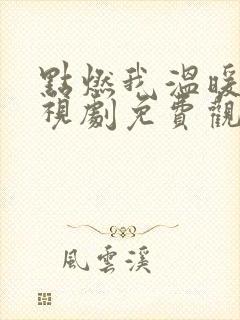 點燃我溫暖
視劇免費觀
風雲溪